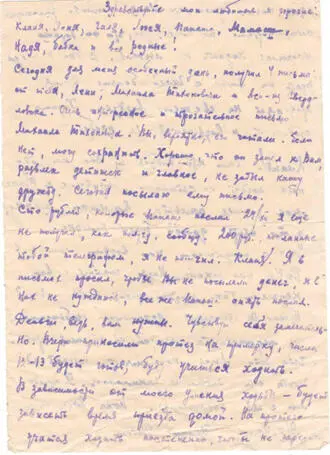 Здравствуйте мои любимые и дорогие:
Клана, Леня, Галя, Люся, Мамаша,
Надя, бабка и все родные!
Сегодня для меня особенный день, получил 4 письма
от тебя, Лени, Михаила и все из Свердловска.
прекрасное и письмо
Михаила Вы, вероятно, ее читали. Если
нет могу сохранил. Хорошо, что он зашел к Вам,
развлек детишек и главное, не забыл нашу
дружбу. Сегодня посылаю ему письмо.
Сто рублей, которые послала 24/ я еще
не получил, как получу, сообщу. 200 руб. посланные
тобой телеграфом, я не получил. Клана! Я в
письмах просил, чтобы Вы не посылали денег, я в
них не нуждаюсь, все же опять послала.
Деньги, ведь, вам нужны. Чувствую себя замечательно.
Но. Вчера приносили протез на примерку, числа
12-13 будет готов, буду учиться ходить.
В зависимости от моего умения ходить – будет
зависеть время приезда домой. На протезе
учатся ходить постепенно, чтобы не